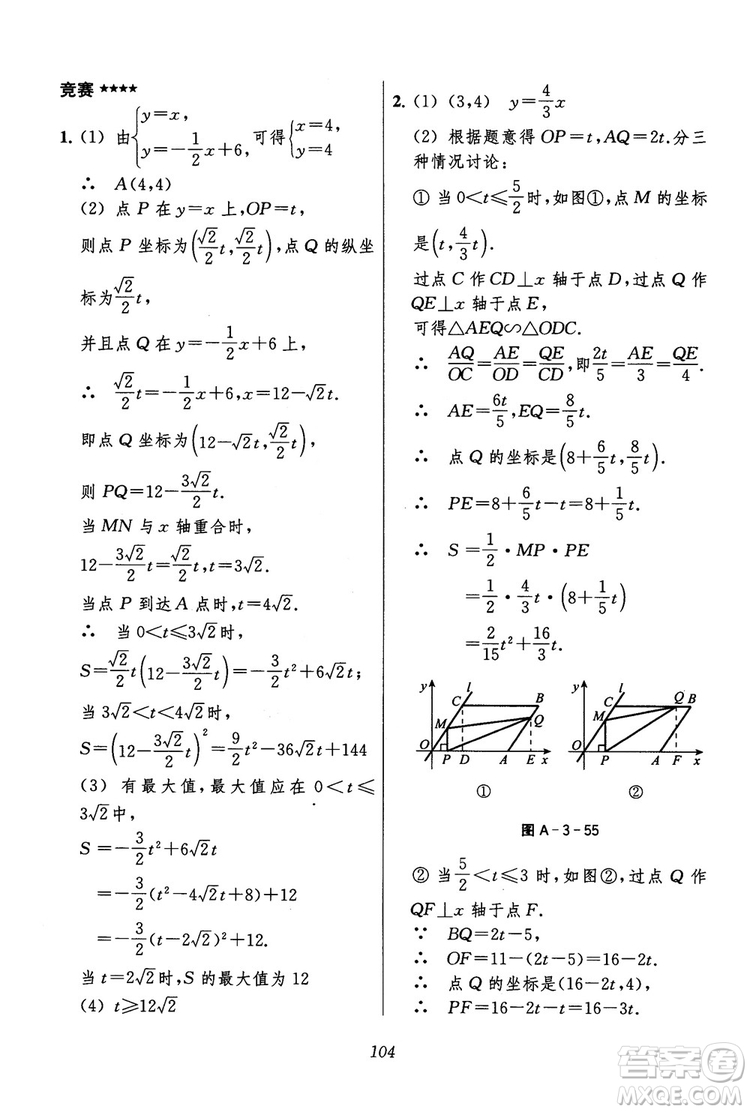 竞赛 ★★★★
1. (1) 由{y=x, y=-1/2x+6, 可得{x=4, y=4
∴ A(4,4)
(2) 点 P 在 y=x 上,OP=t,
则点 P 坐标为(√2/2t,√2/2t),点 Q 的纵坐
标为√2/2t,
并且点 Q 在 y=-1/2x+6 上,
∴ √2/2t=-1/2x+6,x=12-√2t.
即点 Q 坐标为(12-√2t,√2/2t),
则 PQ=12-3√2/2t.
当 MN 与 x 轴重合时,
12-3√2/2t=√2/2t,t=3√2.
当点 P 到达 A 点时,t=4√2.
∴ 当 0<t≤3√2时,
S=√2/2t(12-3√2/2t)=-3/2t²+6√2t;
当 3√2<t<4√2时,
S=(12-3√2/2t)²=9/2t²-36√2t+144
(3) 有最大值,最大值应在 0<t≤
3√2中,
S=-3/2t²+6√2t
=-3/2(t²-4√2t+8)+12
=-3/2(t-2√2)²+12
当 t=2√2时,S 的最大值为 12
(4) t≥12√2
2. (1) (3,4) y=4/3x
(2) 根据题意得 OP=t,AQ=2t.分三
种情况讨论:
① 当 0<t≤5/2时,如图①,点 M 的坐标
是(t,4/3t).
过点 C 作 CD⊥x 轴于点 D,过点 Q 作
QE⊥x 轴于点 E,
可得△AEQ∽△ODC.
∴ AQ/OC=AE/OD=QE/CD,即2t/5=AE/3=QE/4.
∴ AE=6t/5,EQ=8/5t.
∴ 点 Q 的坐标是(8+6/5t,8/5t).
∴ PE=8+6/5t-t=8+1/5t.
∴ S=1/2·MP·PE
=1/2·4/3t·(8+1/5t)
=2/15t²+16/3t.
y l C B M Q O P D A E x
①
y l C Q B M O P A F x
②
图 A-3-55
② 当5/2<t≤3 时,如图②,过点 Q 作
QF⊥x 轴于点 F.
∵ BQ=2t-5,
∴ OF=11-(2t-5)=16-2t.
∴ 点 Q 的坐标是(16-2t,4),
∴ PF=16-2t-t=16-3t.
104
答案圈